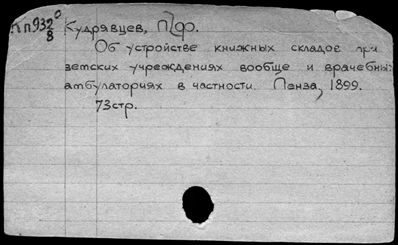 Кп932⁰/8
Кудрявцев, П. Ф.
Об устройстве книжных складов при
земских учреждениях вообще и врачебных
амбулаториях в частности. Пенза, 1899.
73стр.